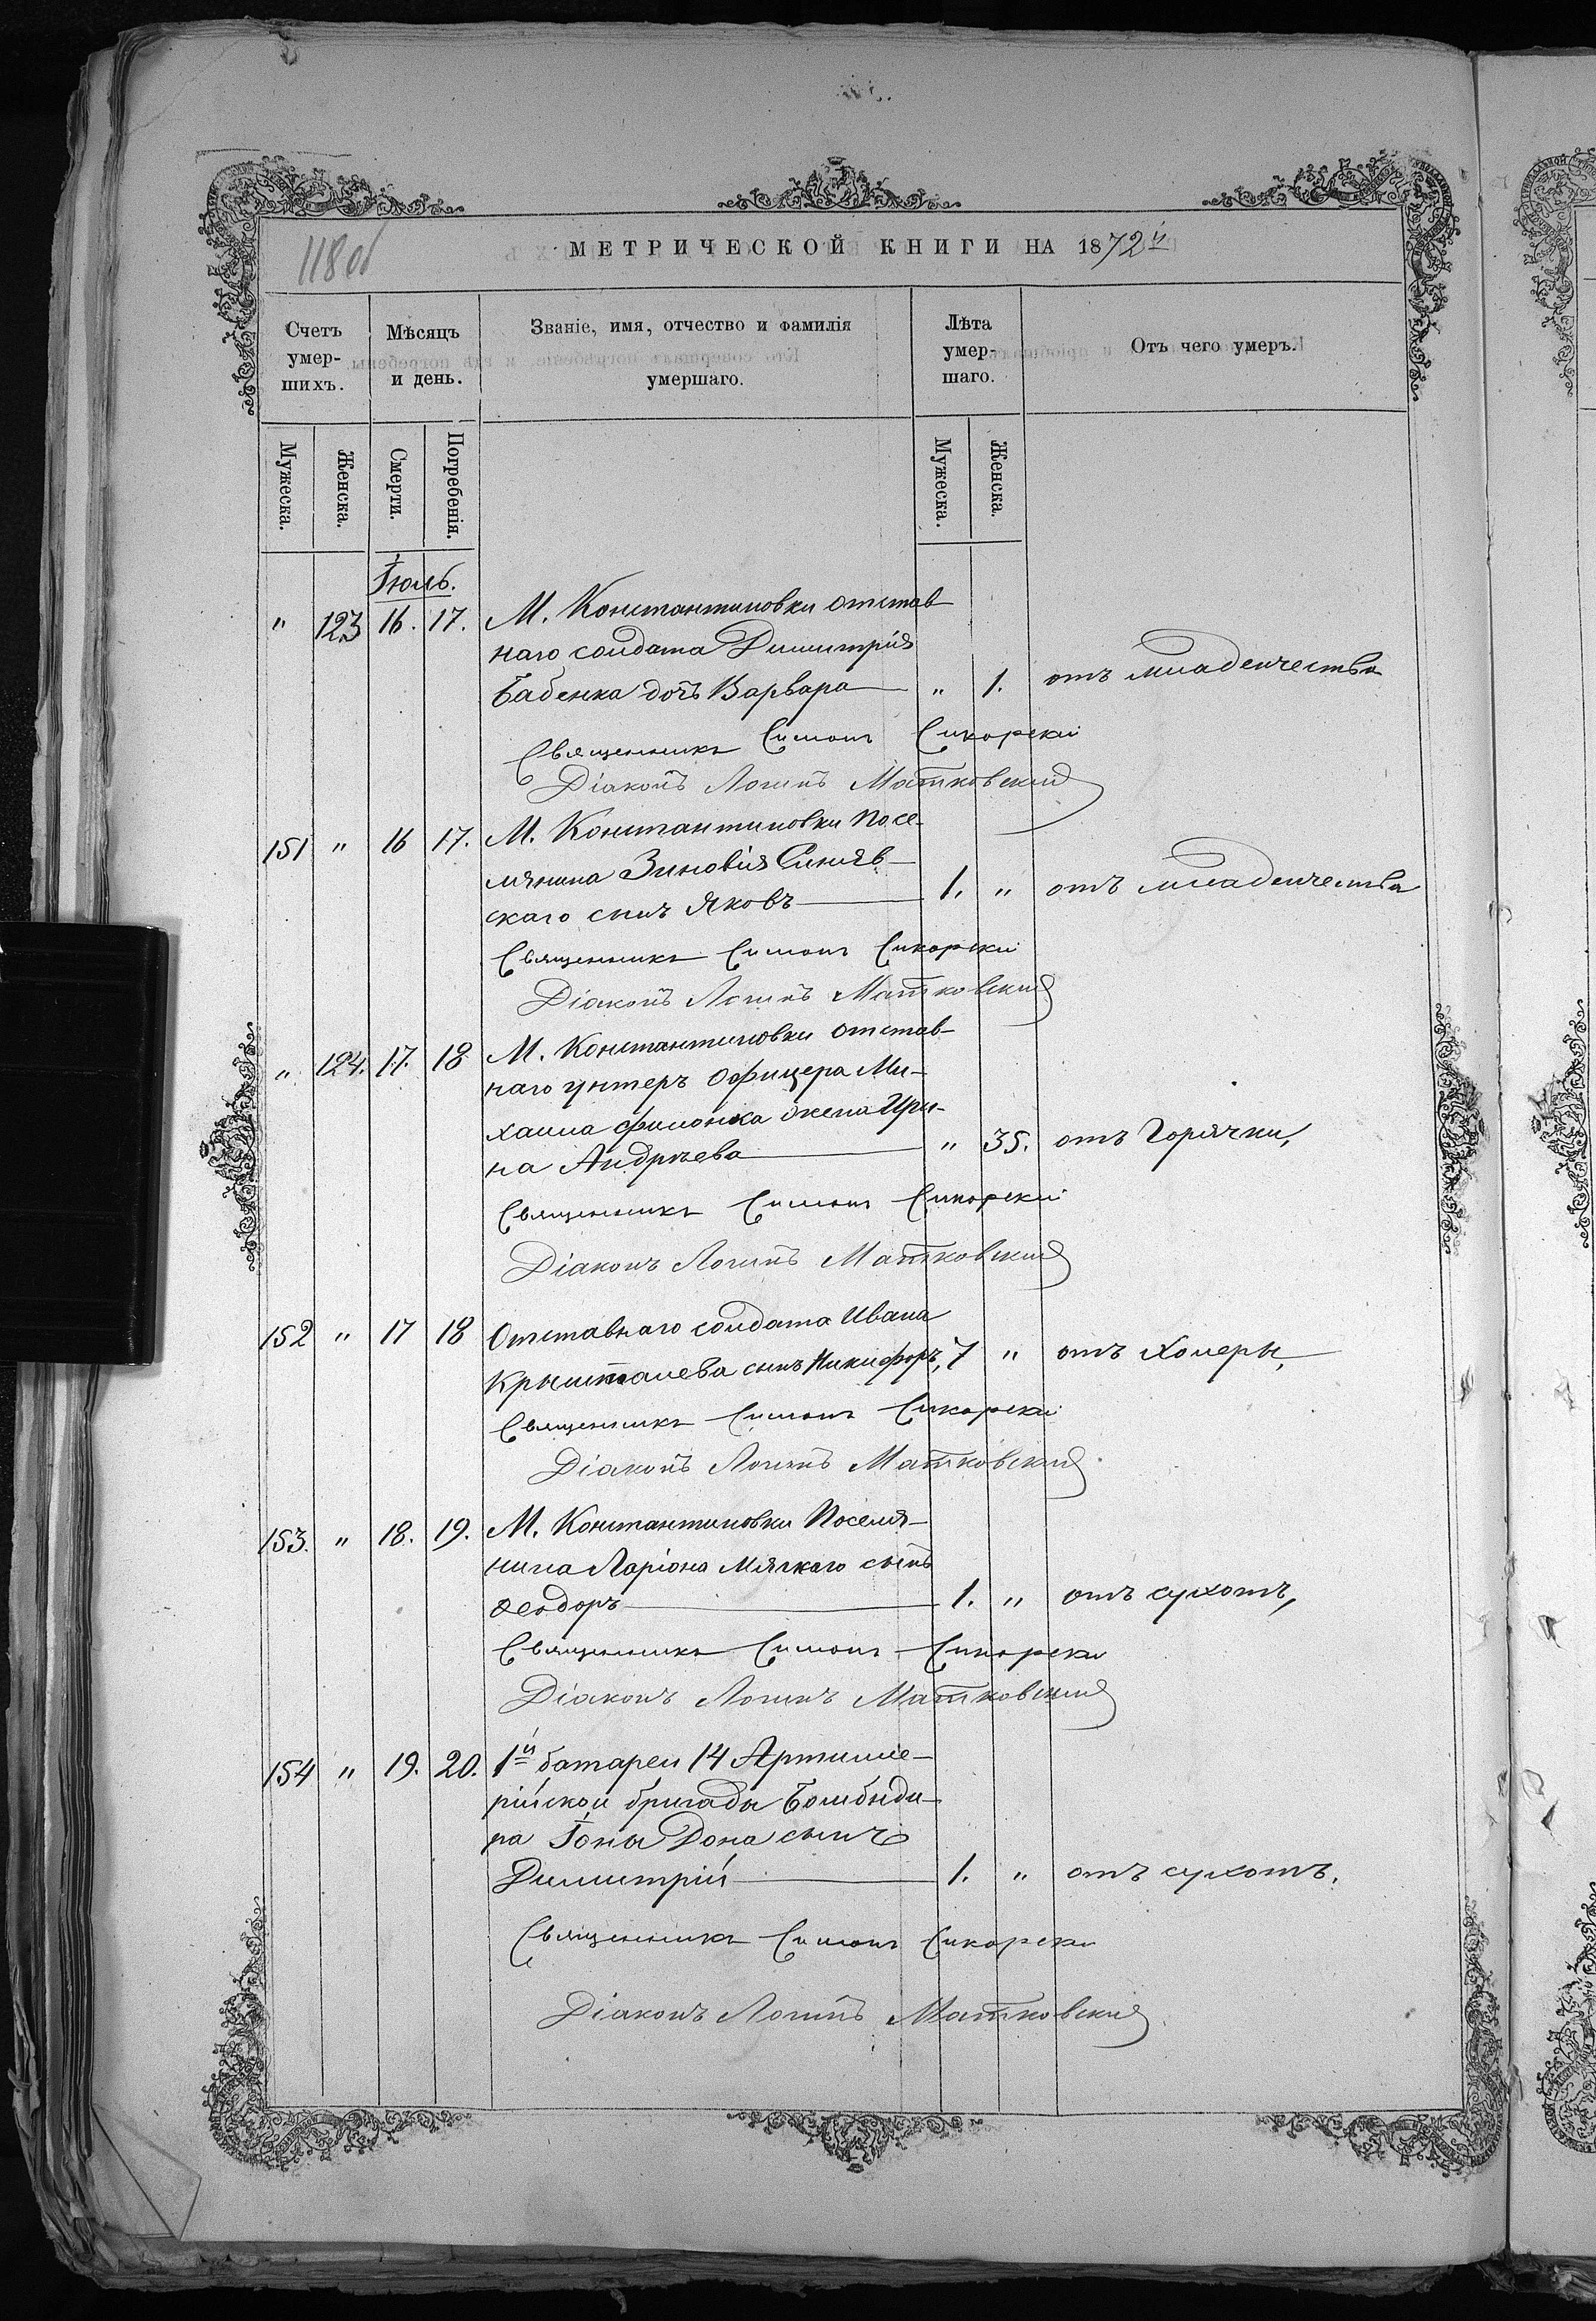 118об
МЕТРИЧЕСКОЙ КНИГИ НА 1872й
Счетъ умер-шихъ. Мѣсяцъ и день. Званіе, имя, отчество и фамилія умершаго. Лѣта умер-шаго. Отъ чего умеръ.
Мужеска. Женска. Смерти. Погребенія. Мужеска. Женска.
Іюль.
" 123 16. 17. М. Константиновки отстав-
наго солдата Димитрія
Бабенка дочь Варвара — " 1. отъ младенчества
Священникъ Симонъ Сикорски
Діаконъ Логинъ Матковский
151 " 16 17. М. Константиновки посе-
лянина Зиновія Синяв-
скаго сынъ Яковъ — 1. " отъ младенчества
Священникъ Симонъ Сикорски
Діаконъ Логинъ Матковский
" 124. 17. 18 М. Константиновки отстав-
наго унтеръ офицера Ми-
хаила Филонка жена Ири-
на Андреева — " 35. отъ Горячки,
Священникъ Симонъ Сикорский
Діаконъ Логинъ Матковский
152 " 17 18 Отставнаго солдата Ивана
Крышталева сынъ Никифоръ, 7 " отъ Холеры,
Священникъ Симонъ Сикорски
Діаконъ Логинъ Матковский
153. " 18. 19. М. Константиновки Поселя-
нина Ларіона Мягкаго сынъ
Ѳеодоръ — 1. " отъ сухотъ,
Священникъ Симонъ Сикорски
Діаконъ Логинъ Матковский
154 " 19. 20. 1й батареи 14 Артилле-
рійской бригады Бомбыди-
ра Іоны Дона сынъ
Димитрій — 1. " отъ сухотъ.
Священникъ Симонъ Сикорски
Діаконъ Логинъ Матковский